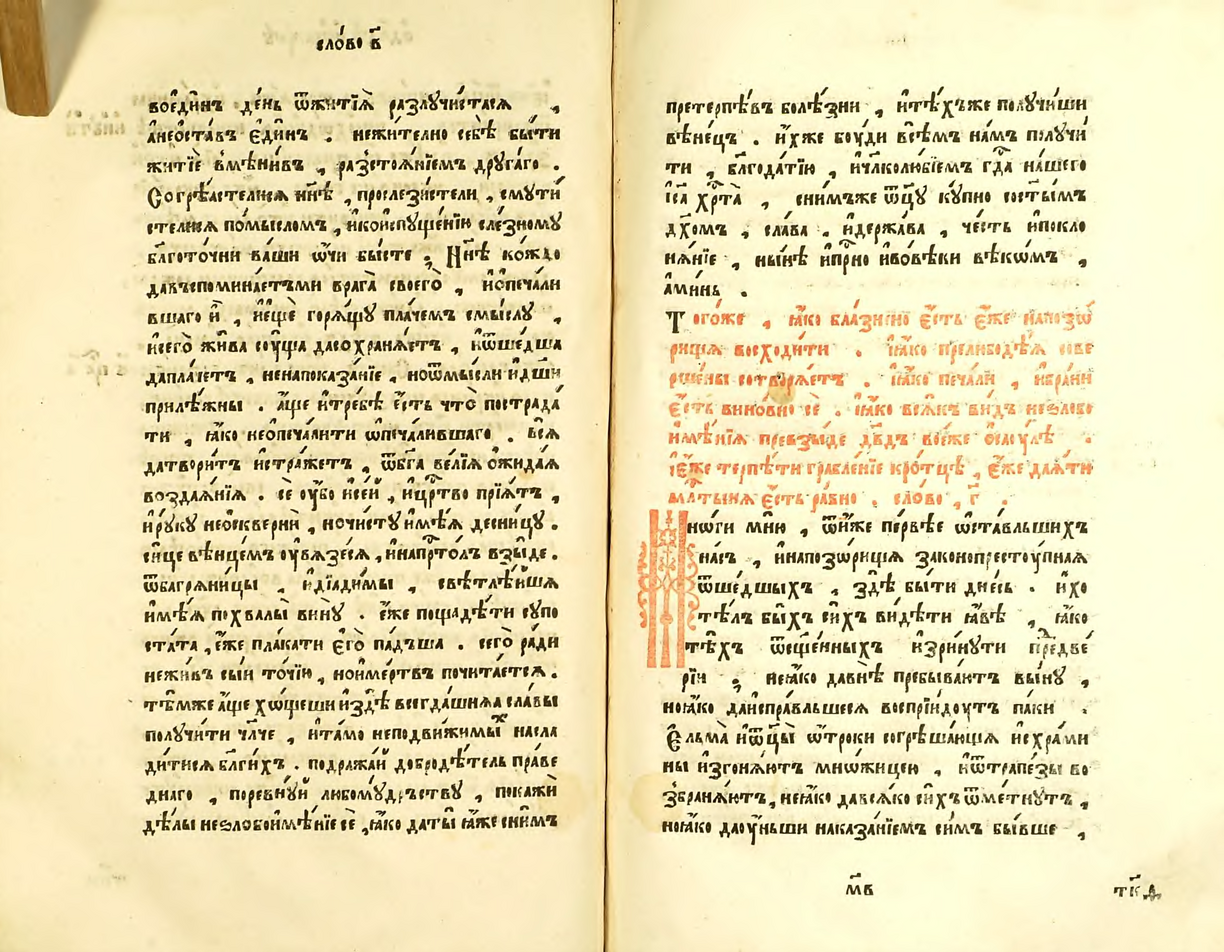 сло́во в҃
воеди́нъ де́нь ѿжитїѧ̀ разлꙋчи́стасѧ ,
а҆неѡ҆ста́въ є҆ди́нъ . нежи́телно себѣ̀ бы́ти
житїѐ вмѣни́въ , разстоѧ́нїемъ дрꙋга́го .
Согрѣ́ѧстелисѧ нн҃ѣ , прослези́стели , смꙋти́
стелисѧ по́мысломъ , и҆коиспꙋще́нїю сле́зномꙋ
бл҃готочни ва́ши ѻ҆́чи бы́сте ; Нн҃ѣ ко́ждо
давъспомина́етъми врага̀ своего̀ , и҆ѡ҆печа́ли
вшаго и҆̀ , и҆є҆щѐ горѧ́щꙋ пла́чемъ смы́слꙋ ,
и҆сего̀ жи́ва сꙋ́ща дасохранѧ́етъ , и҆ѿше́дша
дапла́четъ , ненапоказа́нїе , ноѿмы́сли и҆дш҃и
прилѣ́жны . а҆́ще и҆тре́бѣ є҆́сть что̀ пострада́
ти , ꙗ҆́ко неѡ҆печа́лити ѡ҆печа́лившаго . всѧ̀
датвори́тъ и҆стра́жетъ , ѿбг҃а ве́лїѧ ѻ҆жида́ѧ
воздаѧ́нїѧ . сѐ ᲂу҆́бо и҆се́й , и҆цр҃тво прїѧ́тъ ,
и҆рꙋ́кꙋ неѡ҆сквернѝ , ночи́стꙋ и҆мѣ́ѧ десни́цꙋ .
си́це вѣнце́мъ ᲂу҆вѧзе́сѧ , и҆напрⷭ҇то́лъ взы́де .
ѿбагрѧни́цы , и҆дїади́мы , свѣтлѣ́йшꙋ
и҆мѣ́ѧ похвалы̀ винꙋ̀ . є҆́же пощадѣ́ти сꙋпо
ста́та , є҆́же пла́кати є҆го̀ па́дъша . сего̀ ра́ди
нежи́въ сы́и то́чїю , ноиме́ртвъ почита́етсѧ .
тѣ́мже а҆́ще хо́щеши и҆здѣ̀ всегда́шнѧѧ сла́вы
полꙋчи́ти чл҃че , и҆та́мо неподви́жимыⷯ насла
ди́тисѧ бл҃ги́хъ . подража́й добродѣ́тель пра́ве
днаго , поревнꙋ́й любомꙋ́дръствꙋ , покажѝ
дѣ́лы неѕло́боимѣ́нїе сѐ , ꙗ҆́ко даты̀ ꙗ҆́же сни́мъ
претерпѣ́въ болѣ́зни , и҆тѣ́хъже полꙋчи́ши
вѣне́цъ . и҆́хже бꙋ́ди всѣ́мъ на́мъ полꙋчи́
ти , бл҃года́тїю , и҆чл҃колю́бїемъ гдⷭ҇а на́шего
і҆са хрⷭ҇та̀ , сни́мъже ѿц҃ꙋ кꙋ́пно состы́мъ
дх҃омъ , сла́ва , и҆держа́ва , че́сть и҆покло
нѧ́нїе , ны́нѣ и҆прⷭ҇но и҆вовѣ́ки вѣкѡ́мъ ,
а҆ми́нь .
Тогѡ́же , ꙗ҆́ко бла́знено є҆́сть є҆́же напозѡ́
рища восходи́ти . ꙗ҆́ко прелюбодѣ́ѧ сове
рше́ны сотворѧ́етъ . ꙗ҆́ко печа́ли , и҆бра́ни
є҆́сть вино́вно сѐ . ꙗ҆́ко всѧ́къ ви́дъ неѕло́бо
и҆мѣ́нїѧ превзы́де дв҃дъ вое́же ѡ҆саꙋ́лѣ .
і҆є҆́же терпѣ́ти грабле́нїе кро́тцѣ , є҆́же даѧ́ти
мл҃тынѧ є҆́сть ра́вно . сло́во , г҃ .
Мно́ги мню̀ , ѿни́же пе́рвѣе ѡ҆ста́вльшихъ
на́съ , и҆напозѡ́рища законопрестꙋ́пнаѧ
ѿше́дшыхъ , здѣ̀ бы́ти дне́сь . и҆хо
тѣ́лъ бы́хъ си́хъ ви́дѣти ꙗ҆́вѣ , ꙗ҆́ко
тѣ́хъ ѿсщ҃е́нныхъ и҆зри́нꙋти предве
рїи ; неꙗ҆́ко да́внѣ пребыва́ютъ вы́нꙋ ,
ноꙗ҆́ко даиспра́вльшесѧ воспрїи́дꙋтъ па́ки .
Є҆льма̀ и҆ѿцы̀ ѻ҆́троки согрѣша́ющаѧ и҆схра́ми
ны и҆згонѧ́ютъ мно́жицею , и҆ѿтрапе́зы во
збранѧ́ютъ , неꙗ҆́ко давсѧ́ко си́хъ ѿме́тнꙋтъ ,
ноꙗ҆́ко даᲂу҆́ньши наказа́нїемъ си́мъ бы́вше ,
м҃в
тк҃д